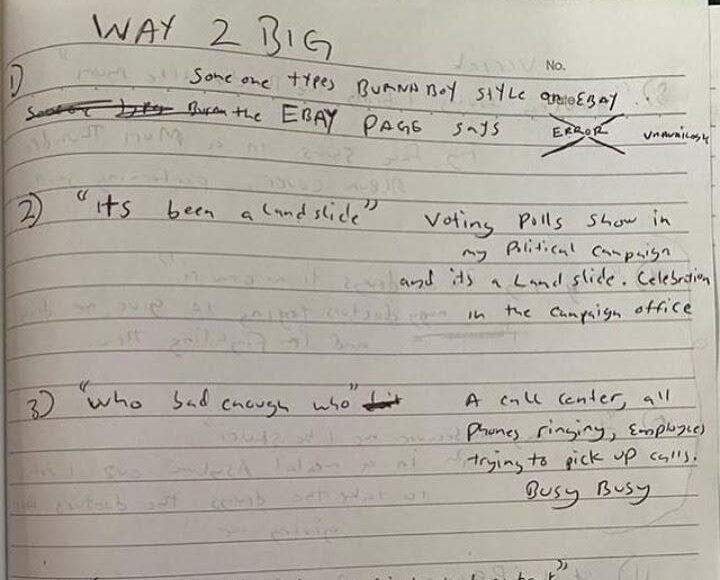 WAY 2 BIG
No.
1) Some one types BURNA BOY STYLE on EBAY
the EBAY PAGE says ERROR
2) "its been a landslide" Voting Polls show in
my Political Campaign
and its a Landslide. Celebration
in the campaign office
3) "who bad enough who" A call center, all
Phones ringing, Employees
trying to pick up calls.
Busy Busy